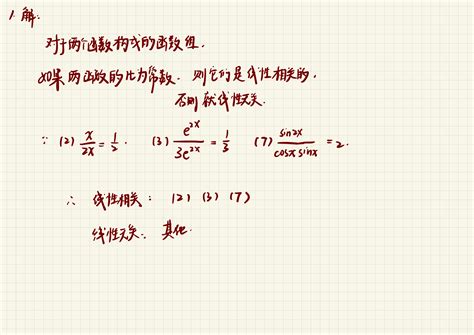 1. 解.
对于两个函数构成的函数组.
如果两函数的比为常数. 则它们是线性相关的,
否则就线性无关.
∵ (2) x/2x = 1/2. (3) e^{2x}/3e^{2x} = 1/3 (7) sin2x/cosx sinx = 2.
∴ 线性相关: (2) (3) (7)
线性无关: 其他.